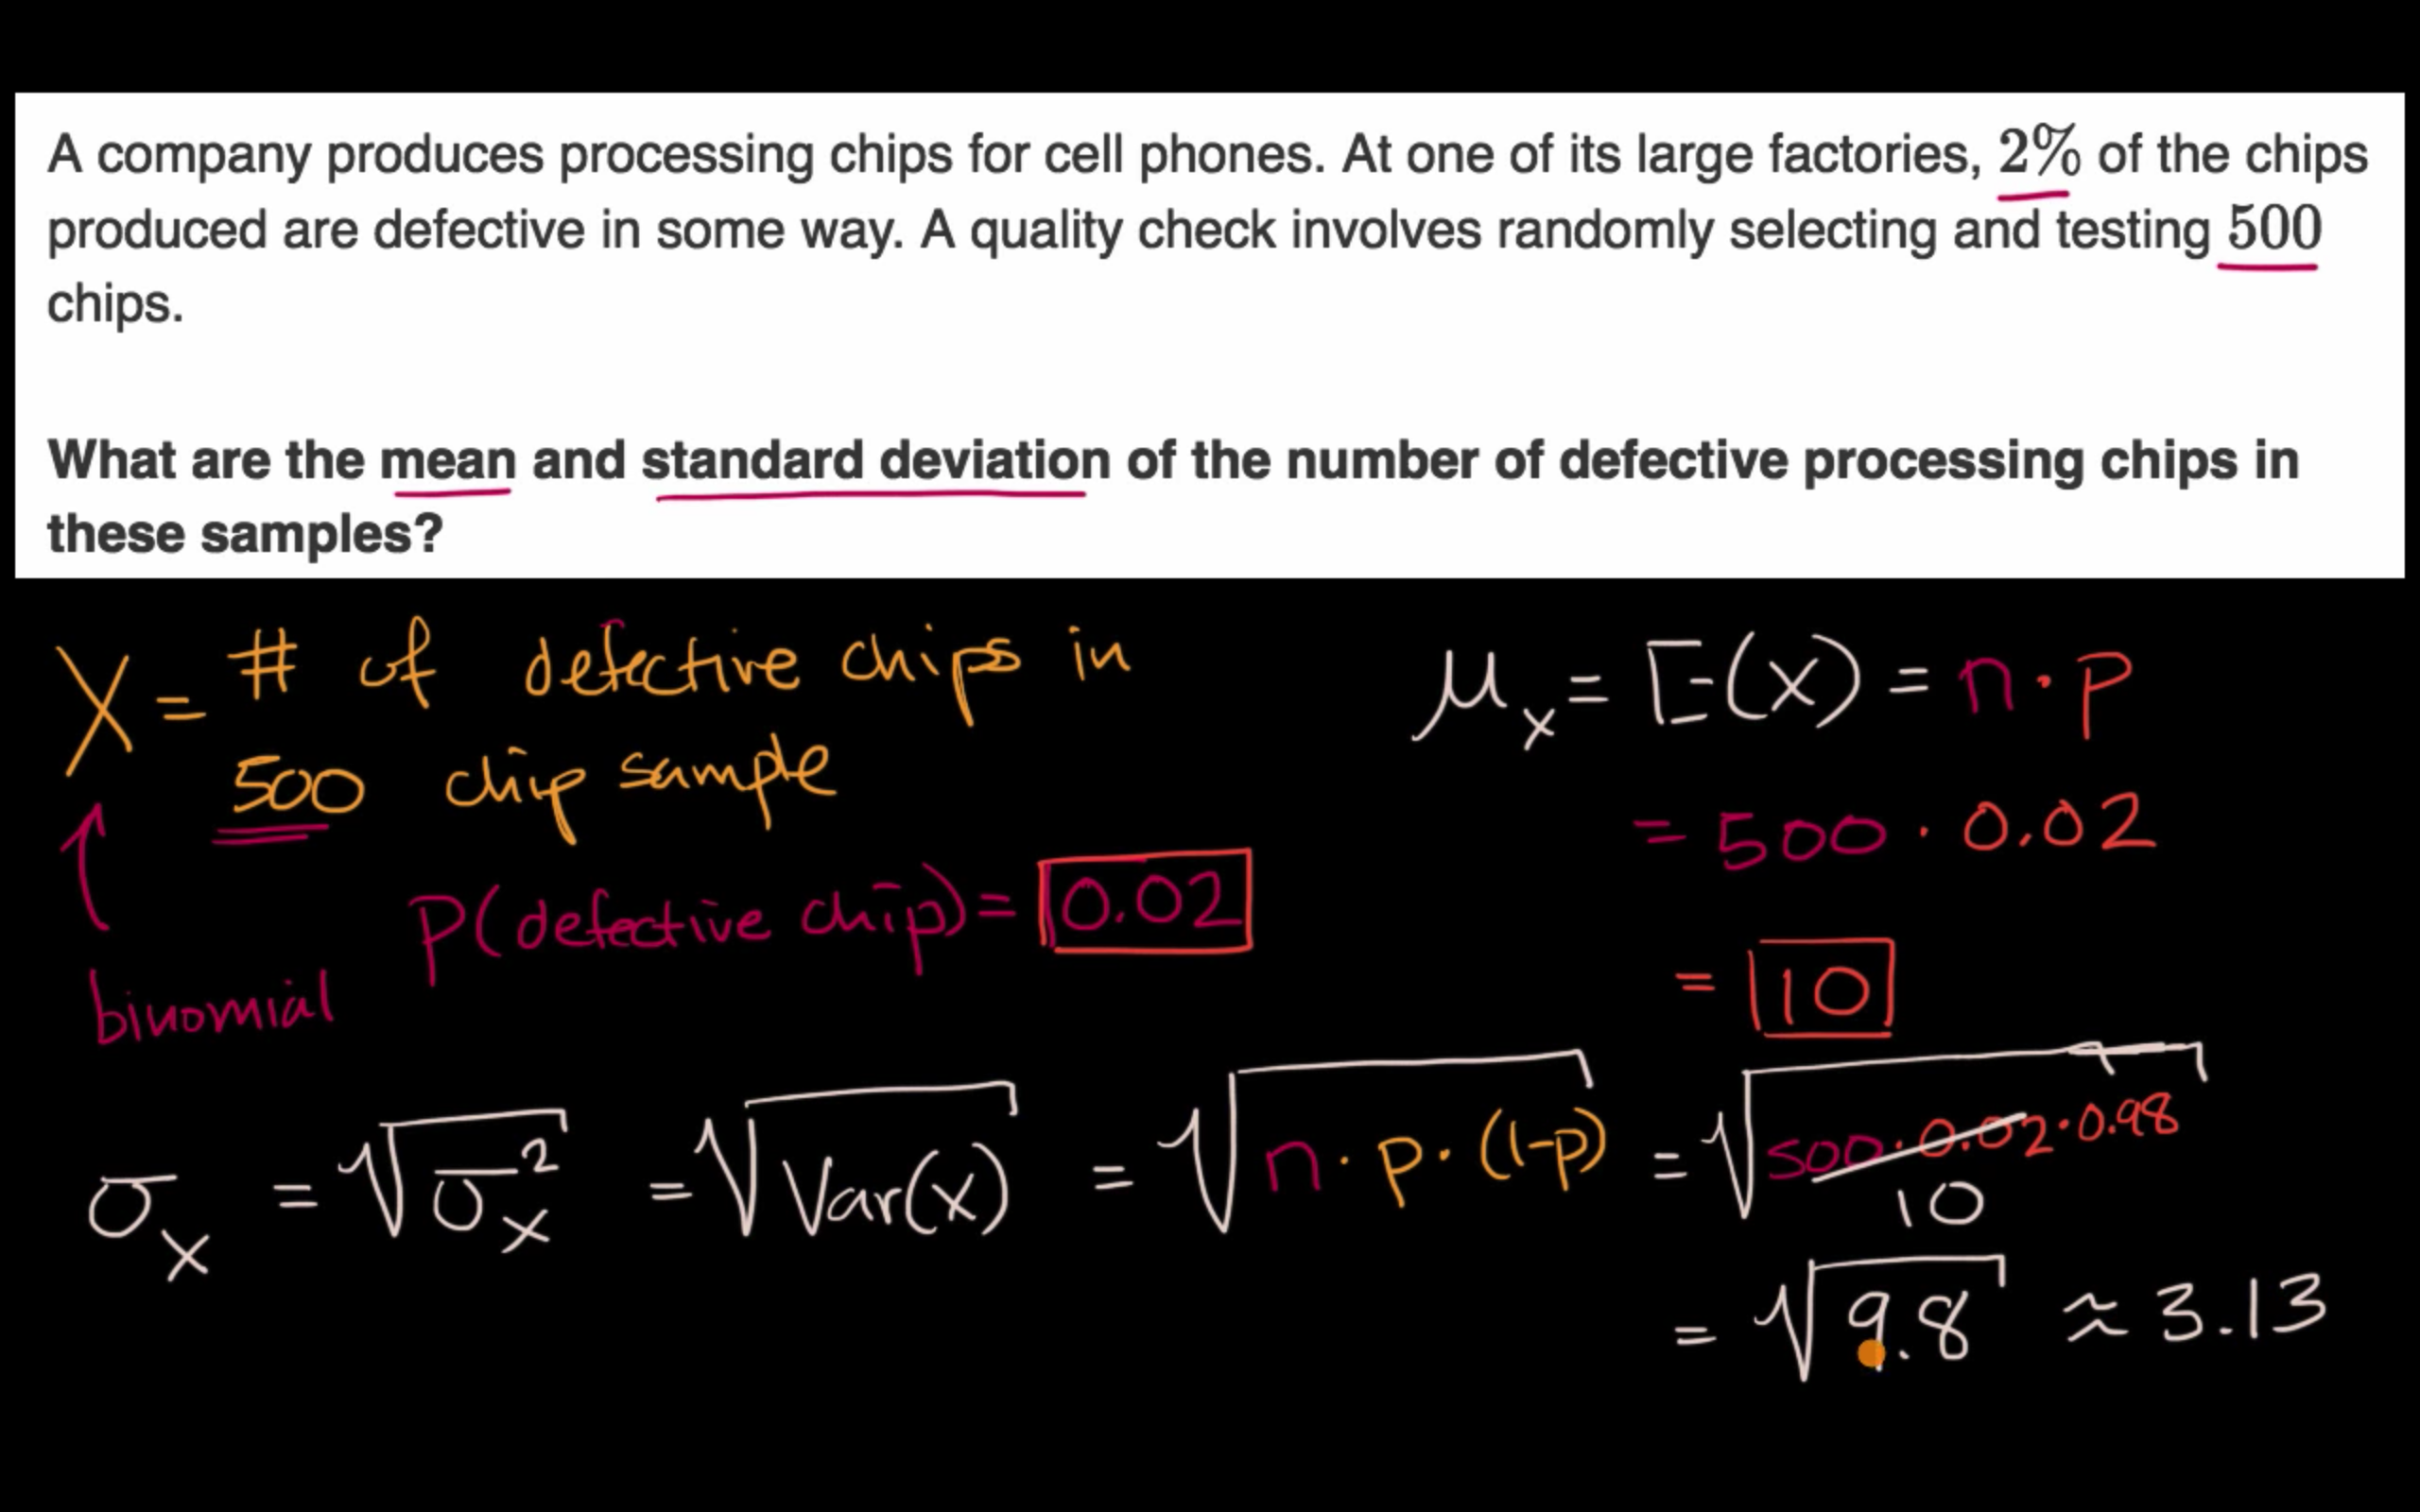 A company produces processing chips for cell phones. At one of its large factories, 2% of the chips
produced are defective in some way. A quality check involves randomly selecting and testing 500
chips.
What are the mean and standard deviation of the number of defective processing chips in
these samples?
X = # of defective chips in
500 chip sample
binomial
P(defective chip) = 0.02
μₓ = E(x) = n · p
= 500 · 0.02
= 10
σₓ = √σₓ² = √Var(x) = √n · p · (1-p) = √500 · 0.02 · 0.98
10
= √9.8 ≈ 3.13